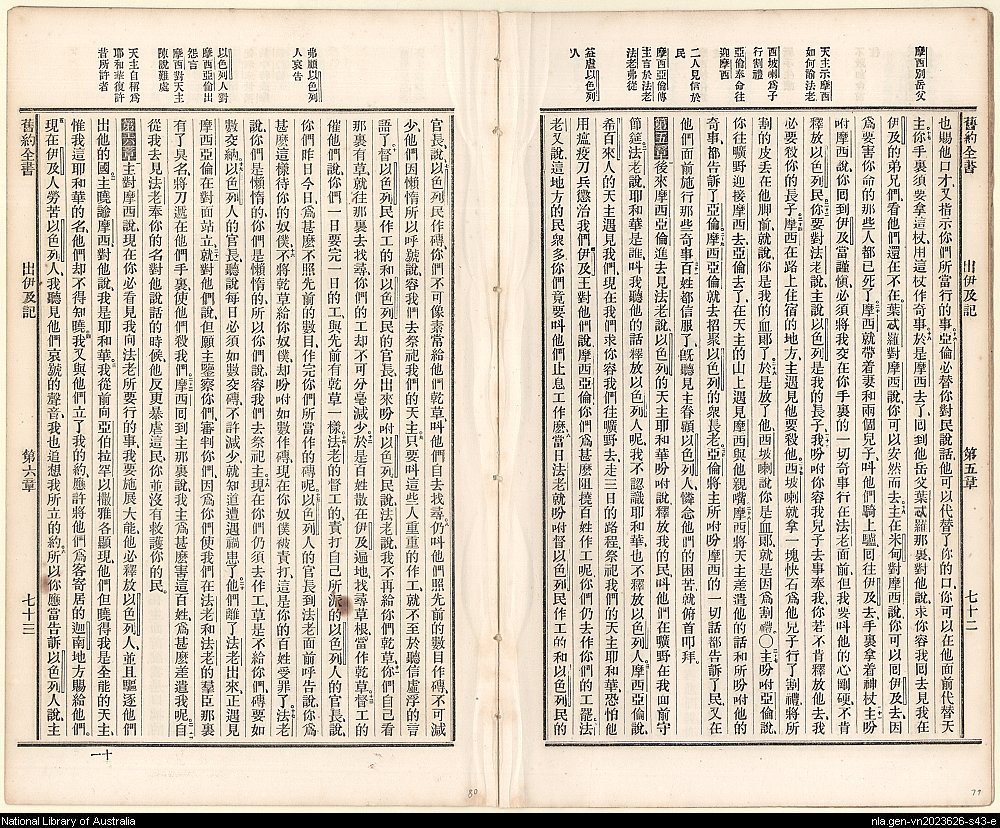 摩西別岳父
天主示摩西
如何諭法老
西坡喇爲子
行割禮
亞倫奉命往
迎摩西
二人見信於
民
摩西亞倫傳
主言於法老
法老弗從
益虐以色列
人
舊約全書 出伊及記 第五章 七十二
也賜他口才又指示你們所當行的事亞倫必替你對民說話他可以代替了你的口你可以在他面前代替天
主你手裏須要拿這杖用這杖作奇事於是摩西去了回到他岳父葉忒羅那裏對他說求你容我回去見我在
伊及的弟兄們看他們還在不在葉忒羅對摩西說你可以安然而去主在米甸對摩西說你可以回伊及去因
爲要害你命的那些人都已死了摩西就帶着妻和兩個兒子叫他們騎上驢回往伊及去手裏拿着神杖主吩
咐摩西說你回到伊及當謹愼必須將我交在你手裏的一切奇事行在法老面前但我要叫他的心剛硬不肯
釋放以色列民你要對法老說主說以色列是我的長子我吩咐你容我兒子去事奉我你若不肯釋放他去我
必要殺你的長子摩西在路上住宿的地方主遇見他要殺他西坡喇就拿一塊快石爲他兒子行了割禮將所
割的皮丟在他脚前就說你是我的血郎了於是放了他西坡喇說你是血郎就是因爲割禮〇主吩咐亞倫說
你往曠野迎接摩西去亞倫去了在天主的山上遇見摩西與他親嘴摩西將天主差遣他的話和所吩咐他的
奇事都告訴了亞倫摩西亞倫就去招聚以色列的衆長老亞倫將主所吩咐摩西的一切話都告訴了民又在
他們面前施行那些奇事百姓都信服了旣聽見主眷顧以色列人憐念他們的困苦就俯首叩拜
第五章後來摩西亞倫進去見法老說以色列的天主耶和華吩咐說釋放我的民叫他們在曠野在我面前守
節筵法老說耶和華是誰叫我聽他的話釋放以色列人呢我不認識耶和華也不釋放以色列人摩西亞倫說
希百來人的天主遇見我們現在求你容我們往曠野去走三日的路程祭祀我們的天主耶和華恐怕他
用瘟疫刀兵懲治我們伊及王對他們說摩西亞倫你們爲甚麼阻撓百姓作工呢你們仍去作你們的工罷法
老又說這地方的民衆多你們竟要叫他們止息工作麼當日法老就吩咐督以色列民作工的和以色列民的
弗顧以色列
人哀告
以色列人對
摩西亞倫出
怨言
摩西對天主
陳說難處
天主自稱爲
耶和華復許
昔所許者
官長說以色列民作磚你們不可像素常給他們乾草叫他們自去找尋仍叫他們照先前的數目作磚不可減
少他們因懶惰所以呼號說容我們去祭祀我們的天主只要叫這些人重重的作工就不至於聽信虛浮的言
語了督以色列民作工的和以色列民的官長出來吩咐以色列民說法老說我不再給你們乾草你們自己看
那裏有草就往那裏去找尋你們的工却不可分毫減少於是百姓散在伊及遍地找尋草根當作乾草督工的
催他們說你們一日要完一日的工與先前有乾草一樣法老的督工的責打自己所派的以色列人的官長說
你們昨日今日爲甚麼不照先前的數目作完你們所當作的磚呢以色列人的官長到法老面前呼告說你爲
甚麼這樣待你的奴僕不將乾草給你奴僕却吩咐如數作磚現在你奴僕被責打這是你的百姓受罪了法老
說你們是懶惰的你們是懶惰的所以你們說容我們去祭祀主現在你們仍須去作工草是不給你們磚要如
數交納以色列人的官長聽說每日必須如數交磚不許減少就知道遭遇禍患了他們離了法老出來正遇見
摩西亞倫在對面站立就對他們說但願主鑒察你們審判你們因爲你們使我們在法老和法老的羣臣那裏
有了臭名將刀遞在他們手裏使他們殺我們摩西回到主那裏說我主爲甚麼害這百姓爲甚麼差遣我呢自
從我去見法老奉你的名對他說話的時候他反更暴虐這民你並沒有救護你的民
第六章主對摩西說現在你必看見我向法老所要行的事我要施展大能他必釋放以色列人並且驅逐他們
出他的國主曉諭摩西對他說我是耶和華我從前向亞伯拉罕以撒雅各顯現他們但曉得我是全能的天主
惟我這耶和華的名他們却不得知曉我又與他們立了我的約應許將他們爲客寄居的迦南地方賜給他們
現在伊及人勞苦以色列人我聽見他們哀號的聲音我也追想我所立的約所以你應當告訴以色列人說主
舊約全書 出伊及記 第六章 七十三
十一
80
79
National Library of Australia
nla.gen-vn2023626-s43-e